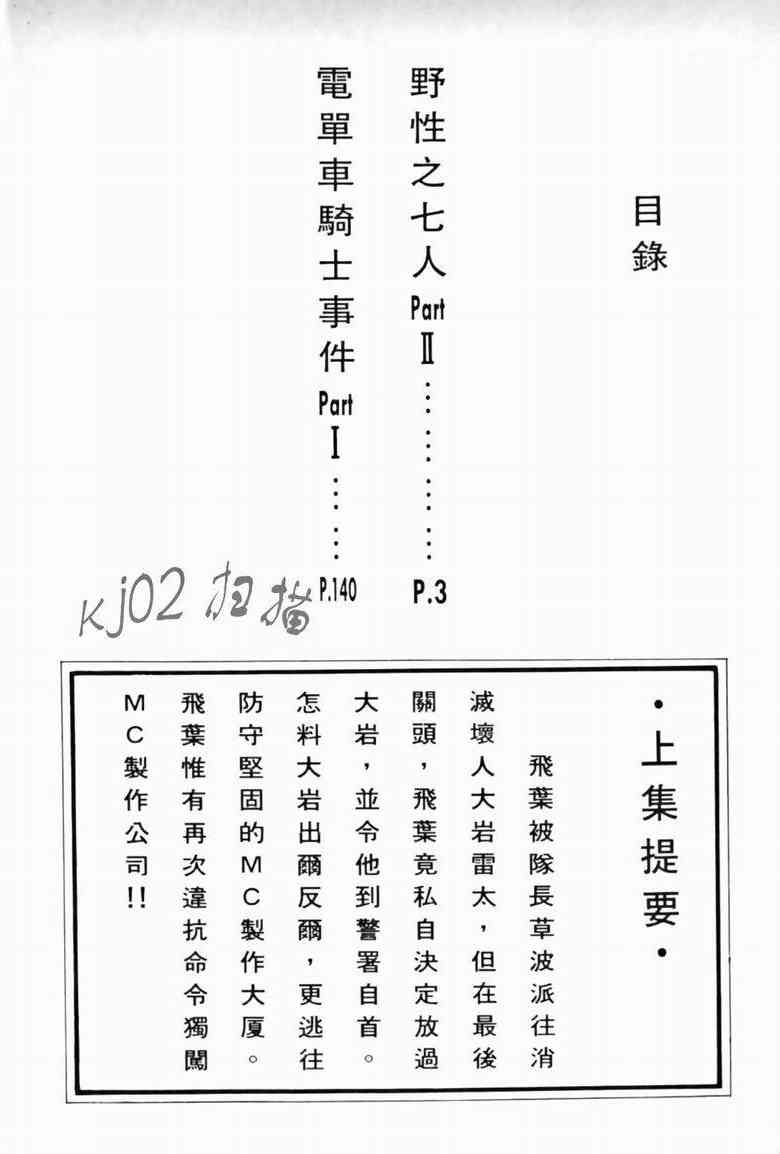 目錄
野性之七人Part Ⅱ…………P.3
電單車騎士事件Part Ⅰ……P.140
kj02 扫描
·上集提要·
飛葉被隊長草波派往消
滅壞人大岩雷太，但在最後
關頭，飛葉竟私自決定放過
大岩，並令他到警署自首。
怎料大岩出爾反爾，更逃往
防守堅固的MC製作大厦。
飛葉惟有再次違抗命令獨闖
MC製作公司!!